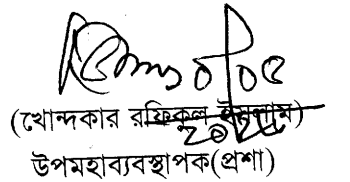 (খোন্দকার রফিকুল ইসলাম)
উপমহাব্যবস্থাপক(প্রশা)